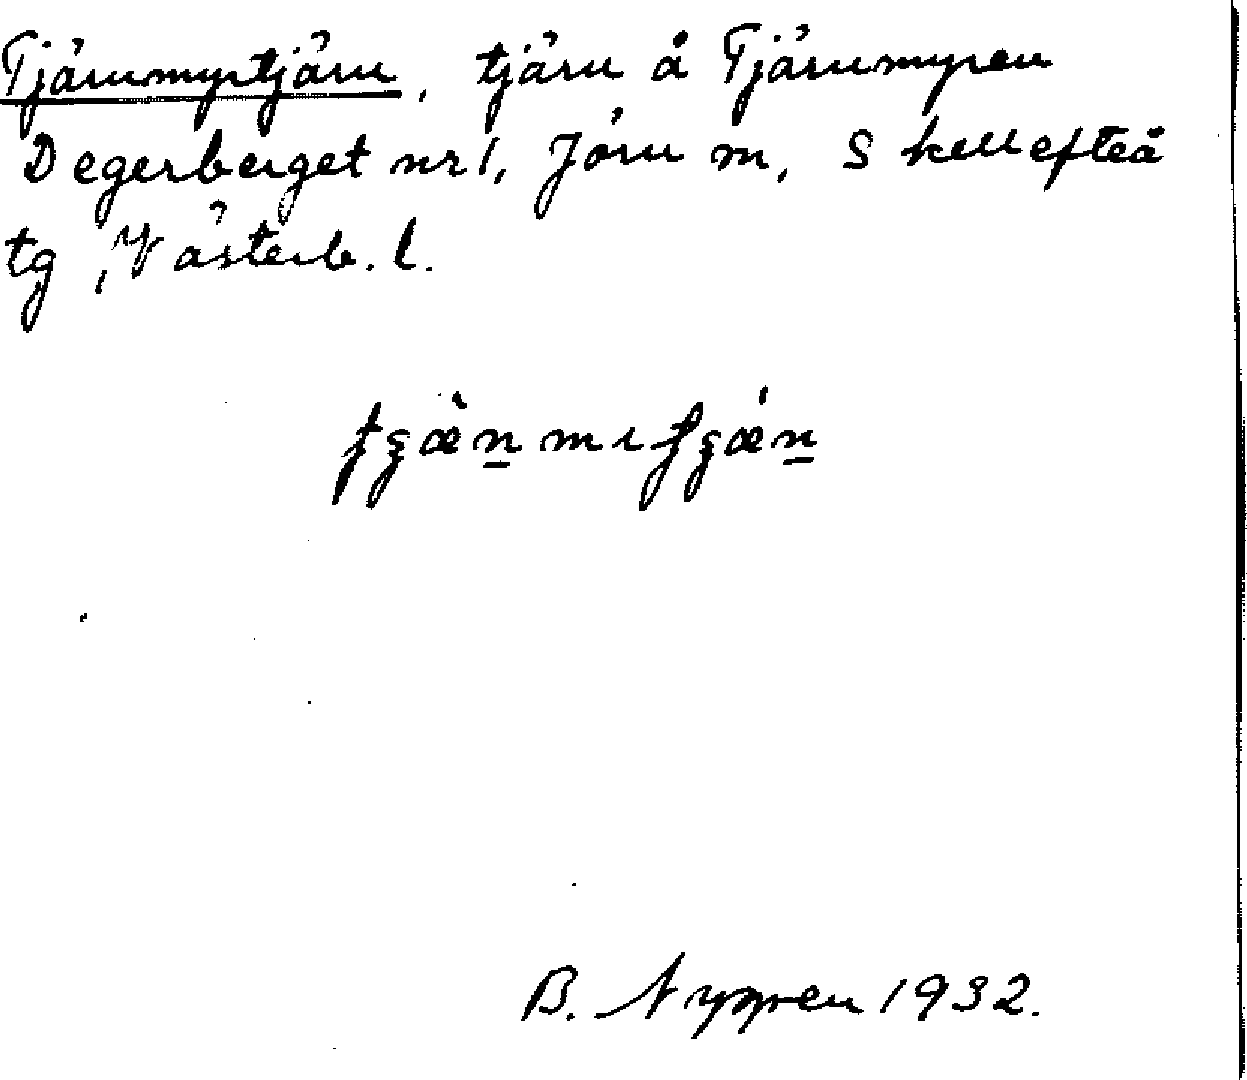 Tjärnmyrtjärn, tjärn å Tjärnmyren
Degerberget nr 1, Jörn m, Skellefteå
tg, Västerb. l.
B. Nygren 1932.